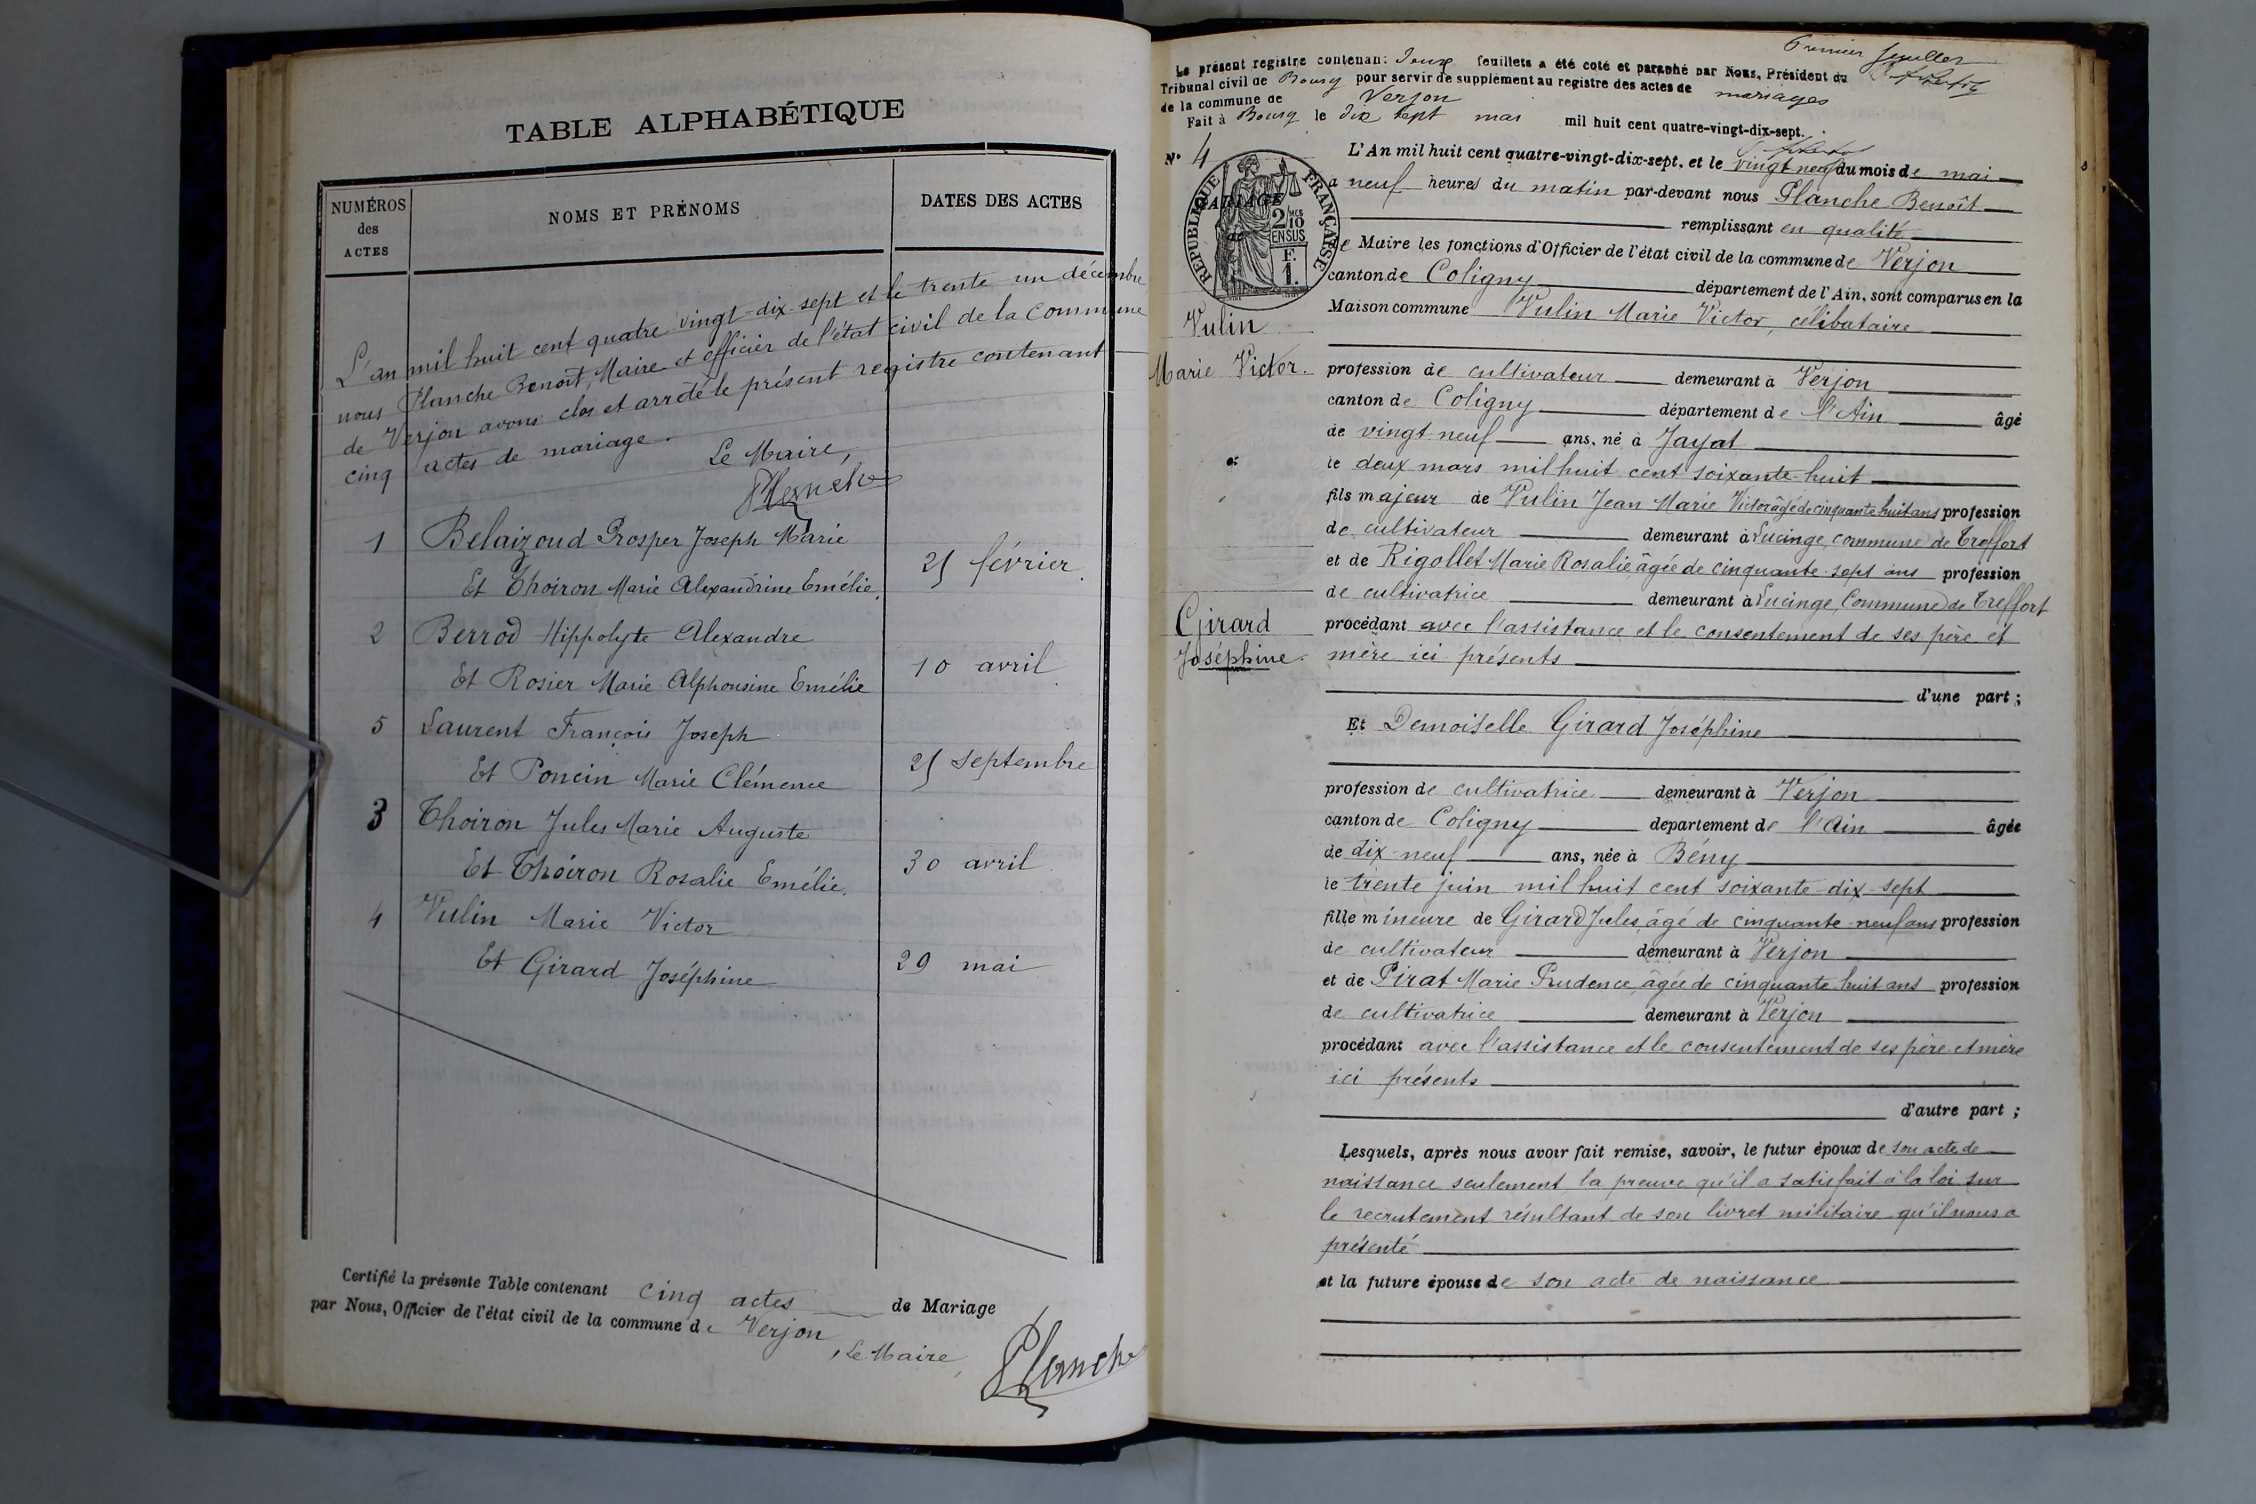 TABLE ALPHABÉTIQUE
NUMÉROS
des
ACTES
NOMS ET PRÉNOMS
DATES DES ACTES
L'an mil huit cent quatre vingt-dix-sept et le trente un décembre
nous Planche Benoît, Maire et officier de l'état civil de la Commune
de Verjon avons clos et arrêté le présent registre contenant
cinq actes de mariage.
Le Maire,
Planche
1 Belaizoud Prosper Joseph Marie
Et Thoiron Marie Alexandrine Emélie. 25 février.
2 Berrod Hippolyte Alexandre
Et Rosier Marie Alphonsine Emélie 10 avril
5 Laurent François Joseph
Et Poncin Marie Clémence 25 septembre
3 Thoiron Jules Marie Auguste
Et Thoiron Rosalie Emélie. 30 avril
4 Vulin Marie Victor
Et Girard Joséphine 29 mai
Certifié la présente Table contenant cinq actes de Mariage
par Nous, Officier de l'état civil de la commune de Verjon
Le Maire
Planche
Premier feuillet
Le présent registre contenant feuillets a été coté et paraphé par Nous, Président du
Tribunal civil de Bourg pour servir de supplément au registre des actes de mariages
de la commune de Verjon
Fait à Bourg le dix sept mai mil huit cent quatre-vingt-dix-sept.
N° 4
RÉPUBLIQUE FRANÇAISE
MARIAGE
de
2 10
MES
EN SUS
F.
1.
Vulin
Marie Victor.
et
Girard
Joséphine.
L'An mil huit cent quatre-vingt-dix-sept, et le vingt neuf du mois de mai
à neuf heures du matin par-devant nous Planche Benoît
remplissant en qualité
de Maire les fonctions d'Officier de l'état civil de la commune de Verjon
canton de Coligny département de l'Ain, sont comparus en la
Maison commune Vulin Marie Victor, célibataire
profession de cultivateur demeurant à Verjon
canton de Coligny département de l'Ain âgé
de vingt-neuf ans, né à Jayat
le deux mars mil huit cent soixante-huit
fils majeur de Vulin Jean Marie Victor âgé de cinquante huit ans profession
de cultivateur demeurant à Lucinge, commune de Treffort
et de Rigollet Marie Rosalie, âgée de cinquante-sept ans profession
de cultivatrice demeurant à Lucinge, Commune de Treffort
procédant avec l'assistance et le consentement de ses père et
mère ici présents
d'une part ;
Et Demoiselle Girard Joséphine
profession de cultivatrice demeurant à Verjon
canton de Coligny département de l'Ain âgée
de dix-neuf ans, née à Bény
le trente juin mil huit cent soixante-dix-sept
fille mineure de Girard Jules, âgé de cinquante-neuf ans profession
de cultivateur demeurant à Verjon
et de Pirat Marie Prudence, âgée de cinquante huit ans profession
de cultivatrice demeurant à Verjon
procédant avec l'assistance et le consentement de ses père et mère
ici présents
d'autre part ;
Lesquels, après nous avoir fait remise, savoir, le futur époux de son acte de
naissance seulement, la preuve qu'il a satisfait à la loi sur
le recrutement résultant de son livret militaire qu'il nous a
présenté
et la future épouse de son acte de naissance